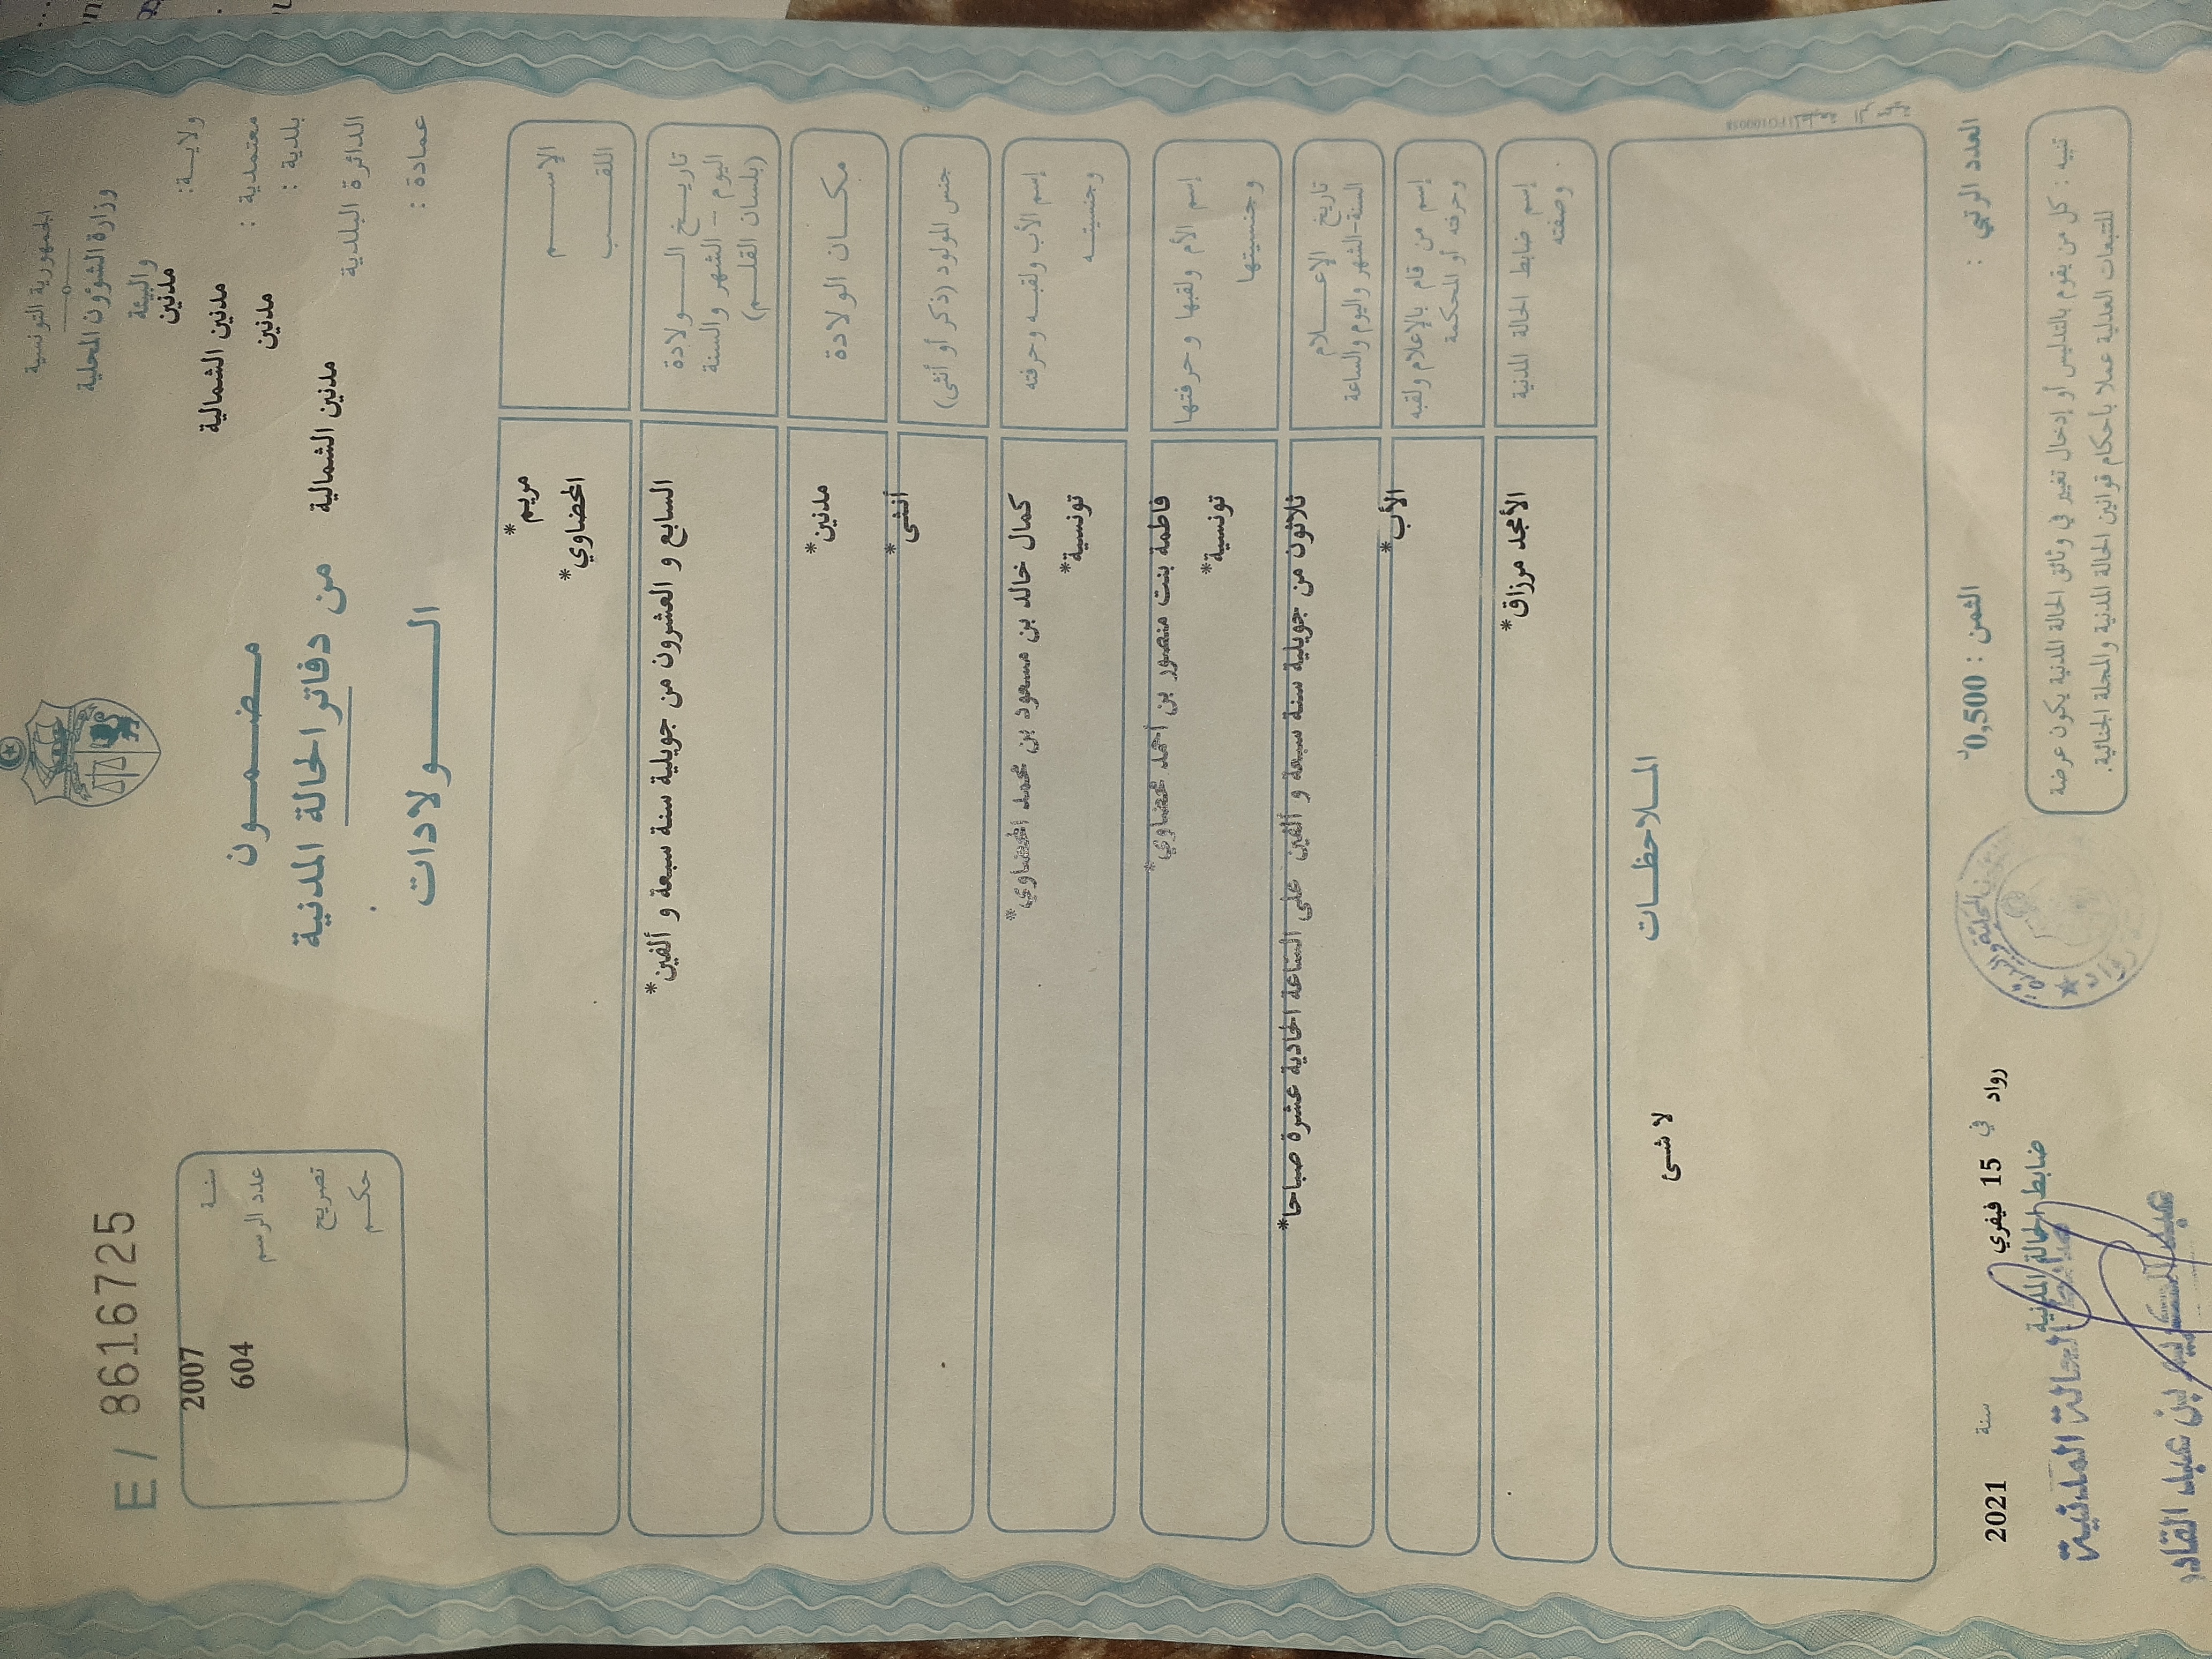 الجمهورية التونسية
وزارة الشؤون المحلية
والبيئة
ولاية: مدنين
معتمدية : مدنين الشمالية
بلدية : مدنين
الدائرة البلدية مدنين الشمالية
عمادة :
E / 8616725
سنة 2007
عدد الرسم 604
تصريح
حكم
مضمون
من دفاتر الحالة المدنية
الولادات
الإسم مريم*
اللقب المحضاوي*
تاريخ الولادة السابع و العشرون من جويلية سنة سبعة و ألفين*
اليوم - الشهر والسنة
(بلسان القلم)
مكان الولادة مدنين*
جنس المولود (ذكر أو أنثى) أنثى*
إسم الأب ولقبه وحرفته كمال خالد بن مسعود بن محمد المحضاوي*
وجنسيته تونسية*
إسم الأم ولقبها وحرفتها فاطمة بنت منصور بن أحمد محضاوي*
وجنسيتها تونسية*
تاريخ الإعلام ثلاثون من جويلية سنة سبعة و ألفين على الساعة الحادية عشرة صباحا*
السنة-الشهر واليوم والساعة
إسم من قام بالإعلام ولقبه الأب*
وحرفته أو المحكمة
إسم ضابط الحالة المدنية الأمجد مرزاق*
وصفته
الملاحظات
لا شئ
العدد الرتبي :
الثمن : 0,500د
رواد في 15 فيفري سنة 2021
ضابط الحالة المدنية
ضابط الحالة المدنية
بن عبد القادر
رواد
تنبيه : كل من يقوم بالتدليس أو إدخال تغيير في وثائق الحالة المدنية يكون عرضة
للتتبعات العدلية عملا بأحكام قوانين الحالة المدنية والمجلة الجنائية.